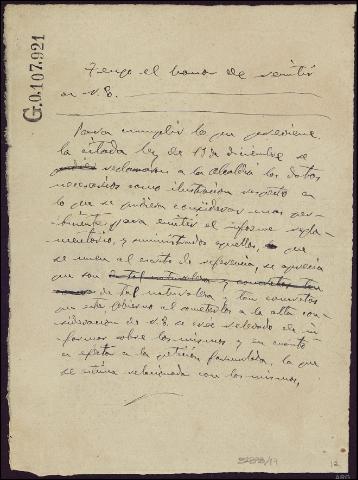 G.0.107.921
Tengo el honor de remitir
a V.E.
Para cumplir lo que previene
la citada ley de 19 de diciembre se
reclamaron a la Alcaldía los datos
necesarios como ilustración respecto en
lo que se pudiera considerar mas per-
tinente para emitir el informe regla-
mentario, y suministrados aquellos, que
se unen al escrito de referencia, se aprecia
que son en tal naturaleza y concretos tan
de tal naturaleza y tan concretos
que este Gobierno al someterlos a la alta con-
sideración de V.E. se cree relevado de in-
formar sobre los mismos y en cuanto
a la petición formulada, la que
se estima relacionada con los mismos,
12